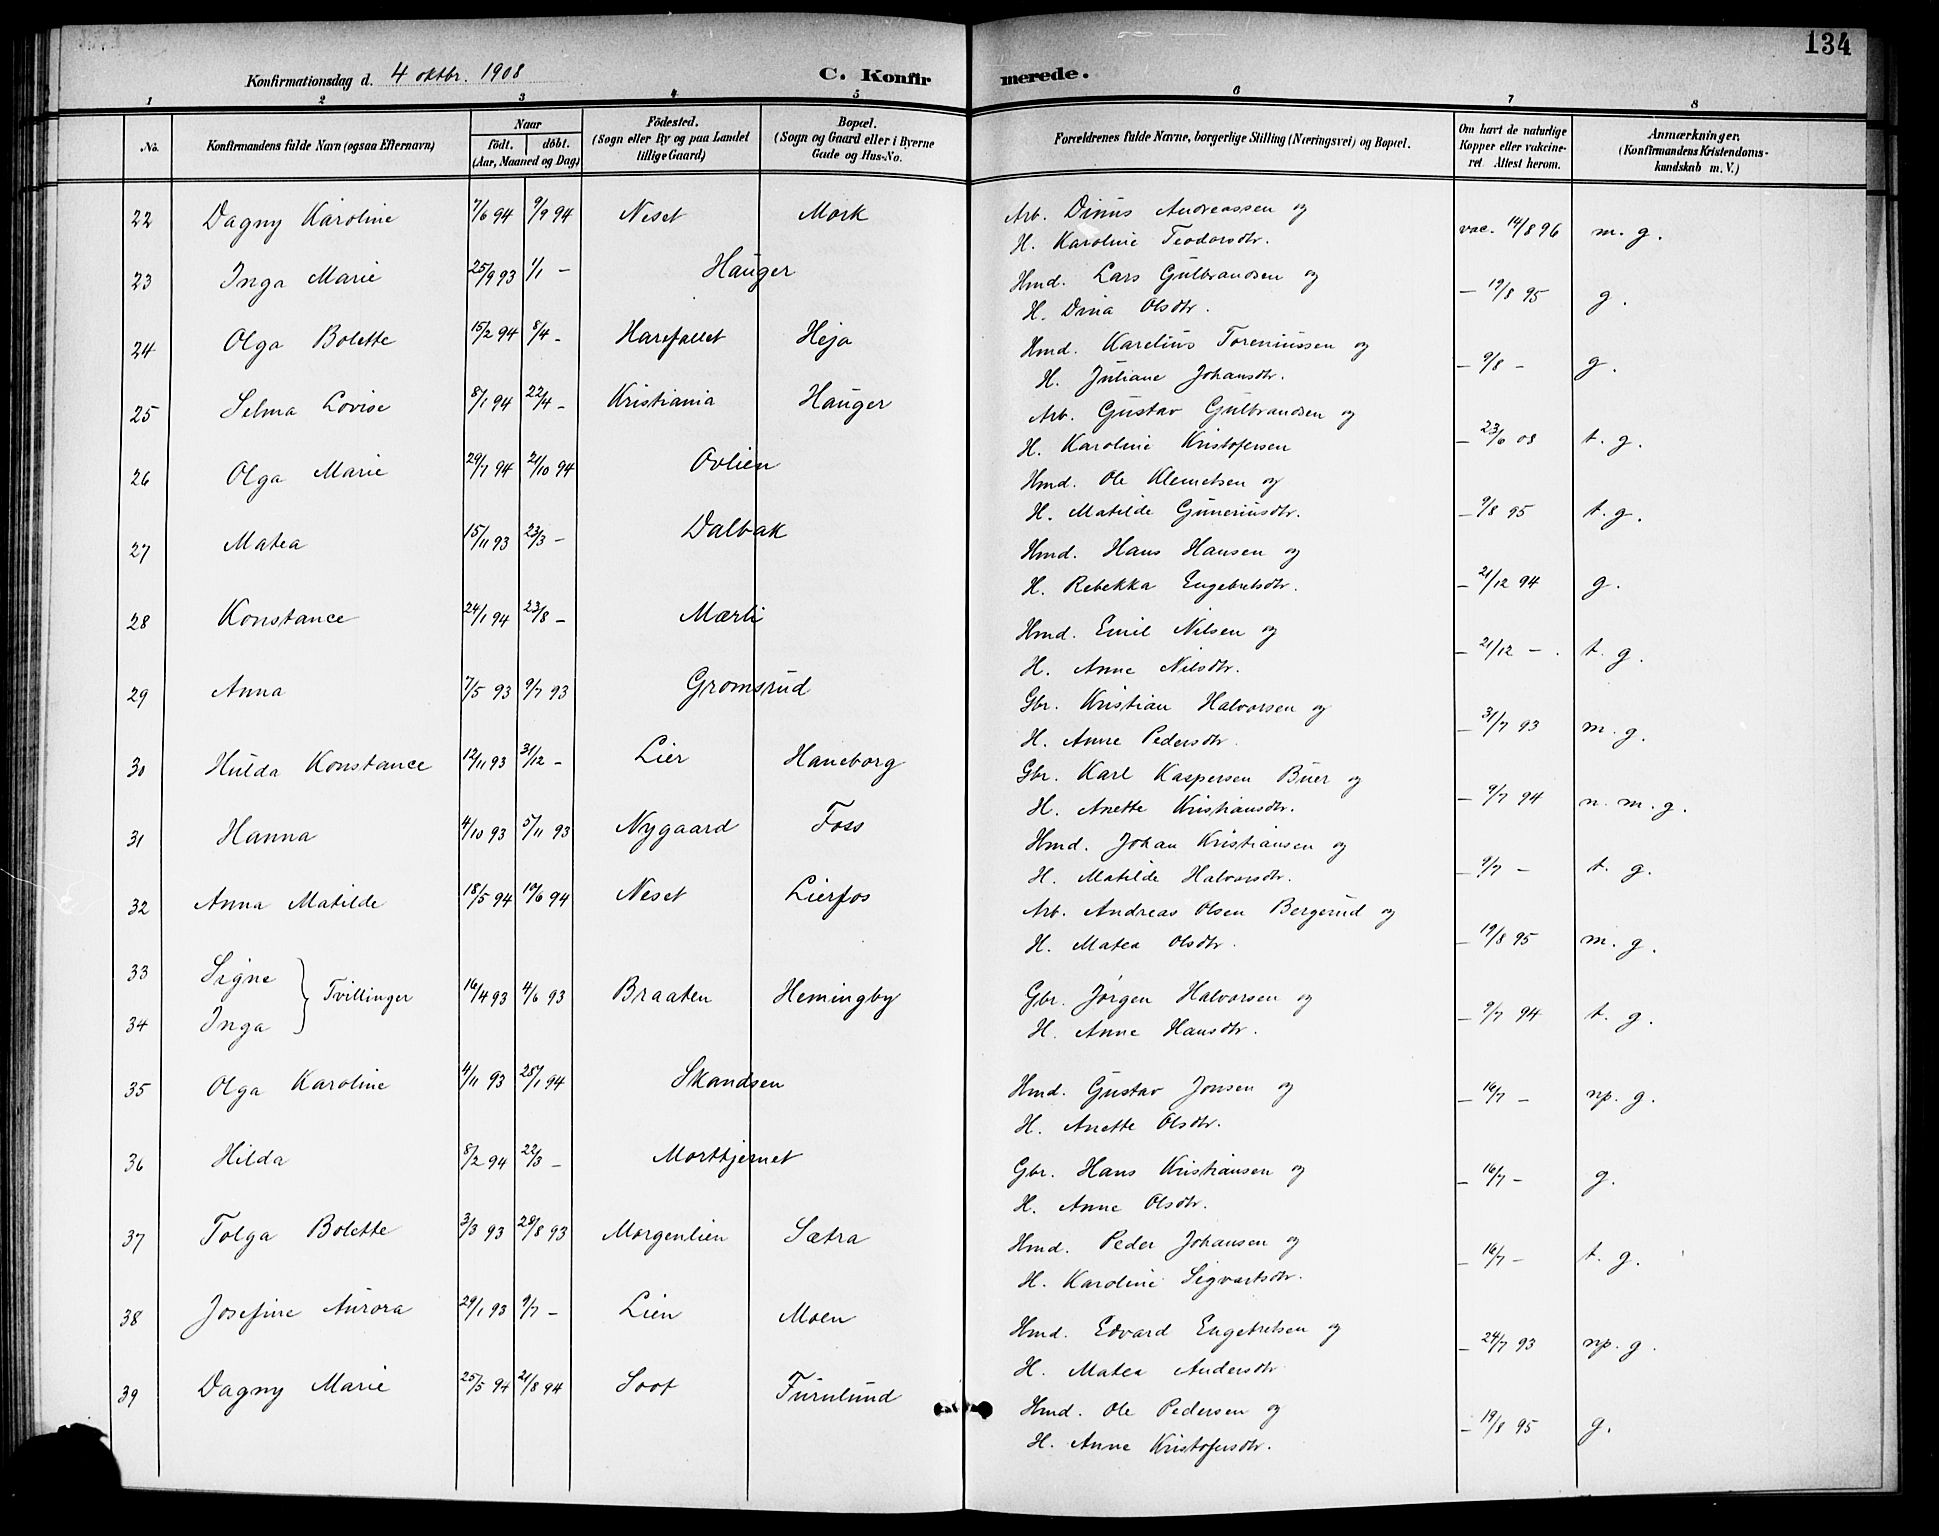 134
Konfirmationsdag d. 4 oktbr. 1908 C. Konfirmerede.
1 2 3 4 5 6 7 8
No. Konfirmandens fulde Navn (ogsaa Efternavn) Naar födt. döbt. (Aar, Maaned og Dag) Födested. (Sogn eller By og paa Landet tillige Gaard) Bopæl. (Sogn og Gaard eller i Byerne Gade og Hus-No. Forældrenes fulde Navne, borgerlige Stilling (Næringsvei) og Bopæl. Om havt de naturlige Kopper eller vakcineret Attest herom. Anmærkninger. (Konfirmandens Kristendomskundskab m. V.)
22 Dagny Karoline 7/6 94 9/9 94 Neset Mork Arb. Dinus Andreassen og vac. 14/8 96 m. g.
H. Karoline Teodorsdtr.
23 Inga Marie 25/9 93 1/1 – Hauger Hmd. Lars Gulbrandsen og – 19/8 95 g.
H. Dina Olsdtr.
24 Olga Bolette 15/2 94 8/4 – Harefallet Heja Hmd. Karelius Toreniussen og – 9/8 – g.
H. Juliane Johansdtr.
25 Selma Lovise 8/1 94 22/4 – Kristiania Hauger Arb. Gustav Gulbrandsen og – 23/6 08 t. g.
H. Karoline Kristofersen
26 Olga Marie 29/7 94 21/10 94 Ovlien Hmd. Ole Klemetsen og – 9/8 95 t. g.
H. Matilde Gunneriusdtr.
27 Matea 15/11 93 23/3 – Dalbak Hmd. Hans Hansen og – 21/12 94 g.
H. Rebekka Engebretsdtr.
28 Konstance 24/1 94 23/8 – Mærli Hmd. Emil Nilsen og – 21/12 – . t. g.
H. Anne Nilsdtr.
29 Anna 7/5 93 9/7 93 Gromsrud Gbr. Kristian Halvorsen og – 31/7 93 m. g.
H. Anne Pedersdtr.
30 Hulda Konstance 12/11 93 31/12 – Lier Haneborg Gbr. Karl Kaspersen Buer og – 9/7 94 n. m. g.
H. Anette Kristiansdtr.
31 Hanna 4/10 93 5/11 93 Nygaard Foss Hmd. Johan Kristiansen og – 9/7 – t. g.
H. Matilde Halvorsdtr.
32 Anna Matilde 18/5 94 10/6 94 Neset Lierfos Arb. Andreas Olsen Bergerud og – 19/8 95 m. g.
H. Matea Olsdtr.
33 Signe } Tvillinger 16/4 93 4/6 93 Braaten Hemingby Gbr. Jörgen Halvorsen og – 9/7 94 t. g.
34 Inga H. Anne Hansdtr.
35 Olga Karoline 4/11 93 28/1 94 Skandsen Hmd. Gustav Jonsen og – 16/7 – np. g.
H. Anette Olsdtr.
36 Hilda 8/2 94 22/3 – Morttjernet Gbr. Hans Kristiansen og – 16/7 – g.
H. Anne Olsdtr.
37 Tolga Bolette 3/3 93 28/8 93 Morgenlien Sætra Hmd. Peder Johansen og – 16/7 – t. g.
H. Karoline Sigvartsdtr.
38 Josefine Aurora 29/1 93 9/7 – Lien Moen Hmd. Edvard Engebretsen og – 24/7 93 np. g.
H. Matea Andersdtr
39 Dagny Marie 25/5 94 21/8 94 Soot Furulund Hmd. Ole Pedersen og – 19/8 95 g.
H. Anne Kristofersdtr.